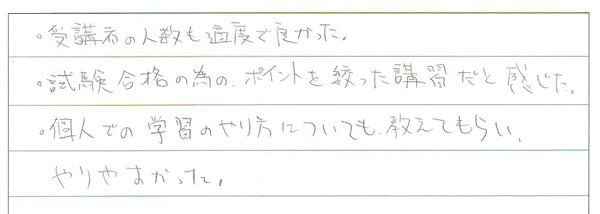 。受講者の人数も適度で良かった。
。試験合格の為の、ポイントを絞った講習だと感じた。
。個人での学習のやり方についても、教えてもらい、
やりやすかった。